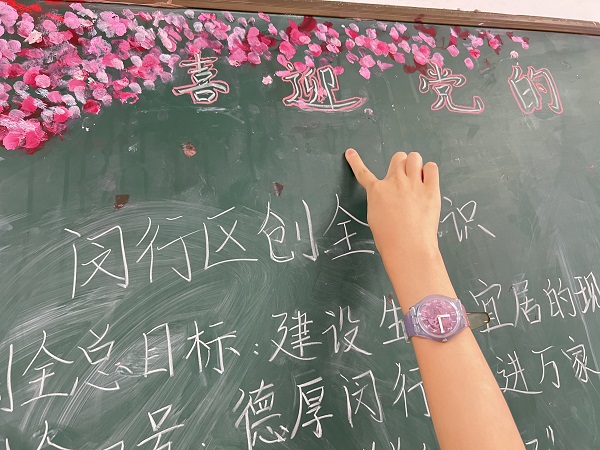 喜迎党的
闵行区创全 识
全总目标:建设生 宜居的现
德厚闵行 进万家